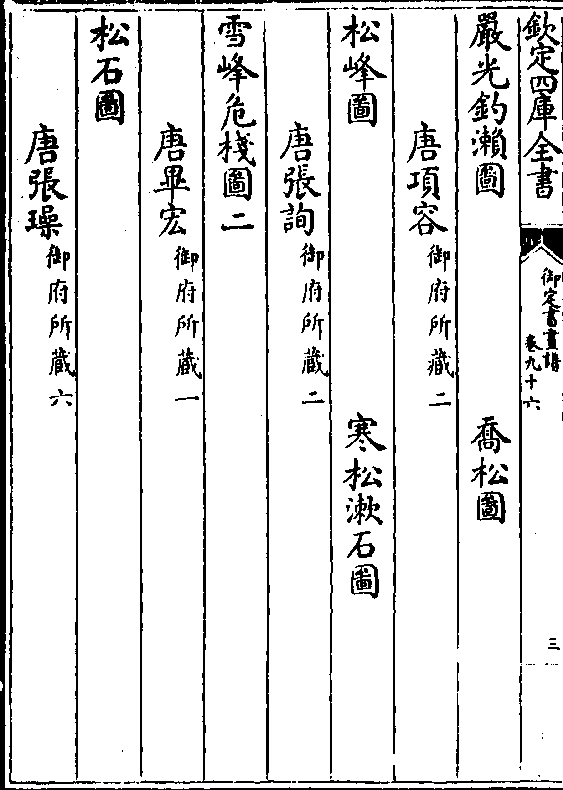 欽定四庫全書
御定書畫譜
卷九十六
三
嚴光釣瀨圖 喬松圖
唐項容御府所藏二
松峰圖 寒松漱石圖
唐張詢御府所藏二
雪峰危棧圖二
唐畢宏御府所藏一
松石圖
唐張璪御府所藏六